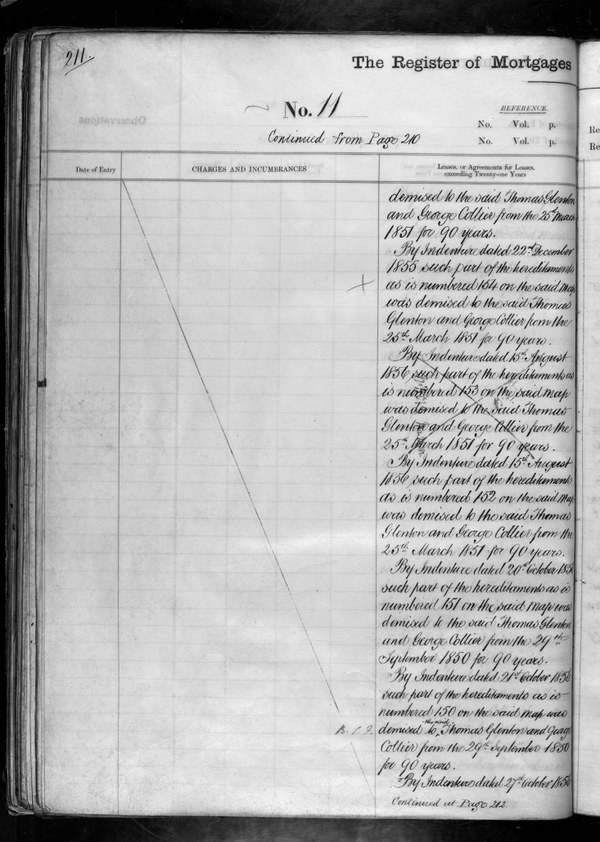 211
The Register of Mortgages
No. 11
REFERENCE.
No. Vol. p.
Continued from Page 210
No. Vol. p.
Observations
Date of Entry
CHARGES AND INCUMBRANCES
Leases, or Agreements for Leases,
exceeding Twenty-one Years
demised to the said Thomas Glenton
and George Collier from the 25th March
1851 for 90 years.
By Indenture dated 22nd December
1855 such part of the hereditaments
as is numbered 154 on the said Map
was demised to the said Thomas
Glenton and George Collier from the
25th March 1851 for 90 years.
By Indenture dated 15th August
1856 such part of the hereditaments as
is numbered 153 on the said map
was demised to the said Thomas
Glenton and George Collier from the
25th March 1851 for 90 years.
By Indenture dated 15th August
1856 such part of the hereditaments
as is numbered 152 on the said Map
was demised to the said Thomas
Glenton and George Collier from the
25th March 1851 for 90 years.
By Indenture dated 20th October 1856
such part of the hereditaments as is
numbered 151 on the said Map was
demised to the said Thomas Glenton
and George Collier from the 29th
September 1850 for 90 years.
By Indenture dated 21st October 1856
such part of the hereditaments as is
numbered 150 on the said Map was
demised to the said Thomas Glenton and George
Collier from the 29th September 1850
for 90 years.
By Indenture dated 27th October 1856
Continued at Page 212